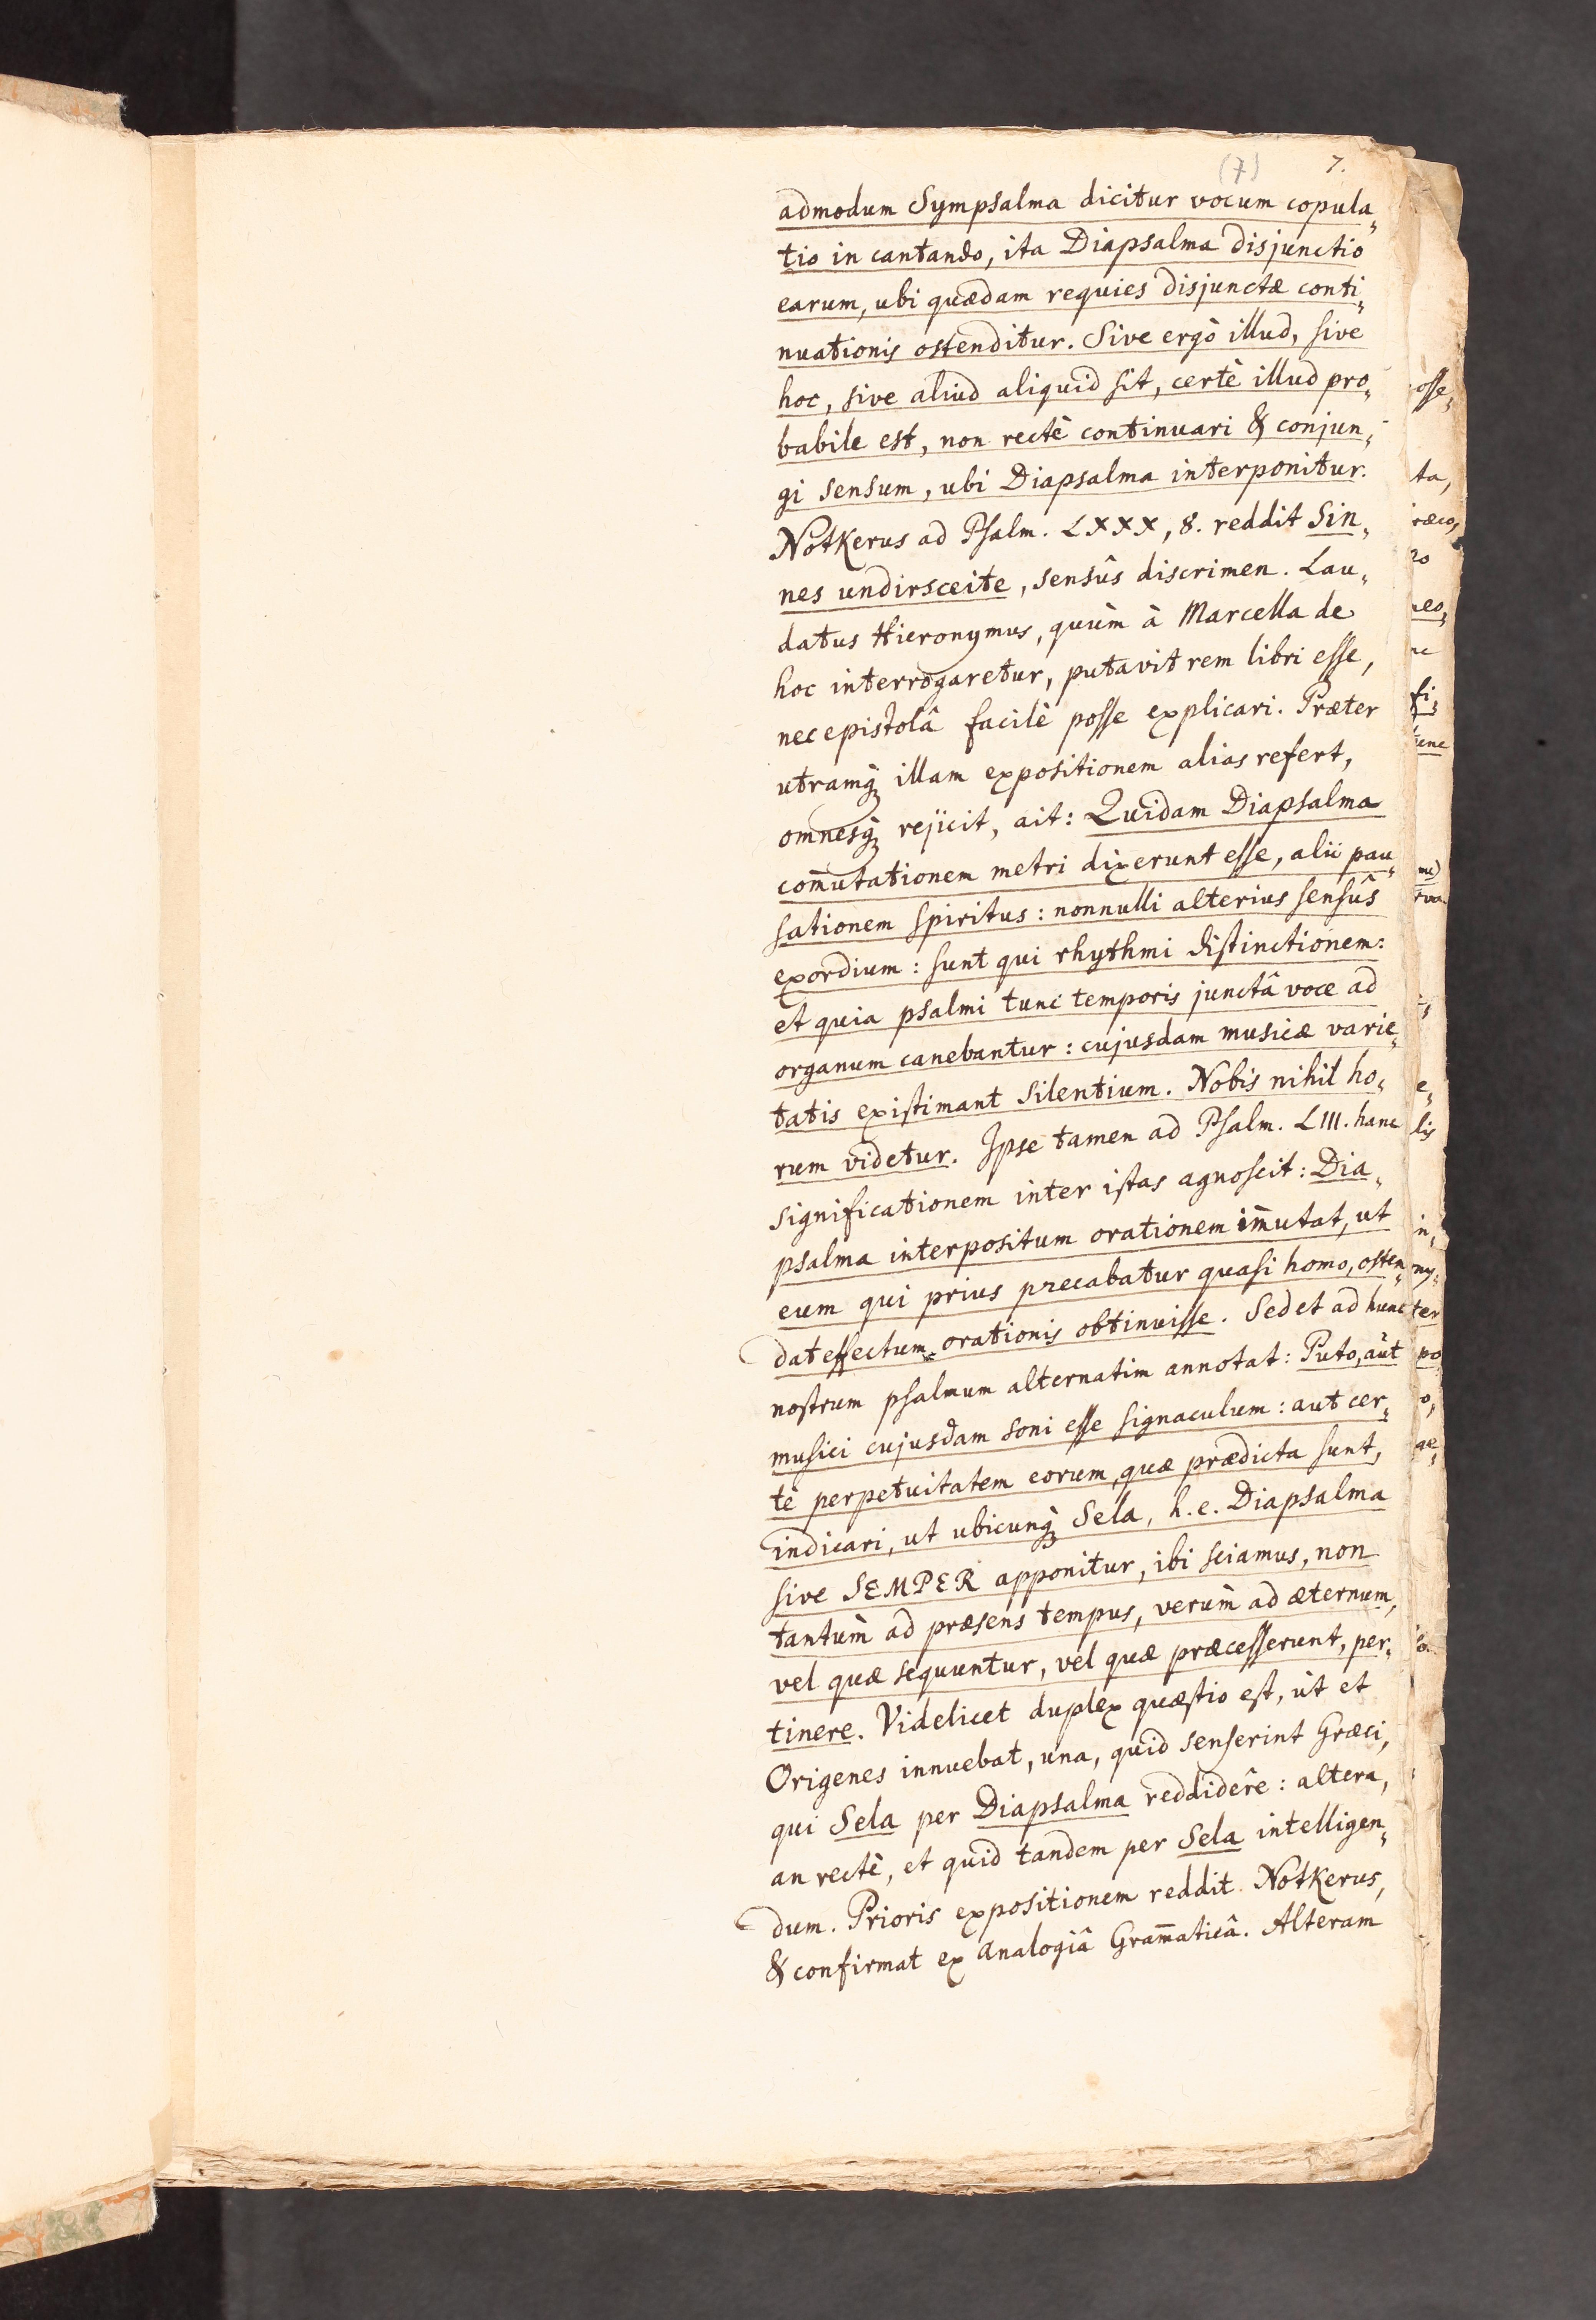 (7) 7.
admodum Sympsalma dicitur vocum copula„
tio in cantando, ita Diapsalma disjunctio
earum, ubi quædam requies disjunctæ conti„
nuationis ostenditur. Sive ergò illud, sive
hoc, sive aliud aliquid sit, certè illud pro„
babile est, non rectè continuari & conjun„
gi sensum, ubi Diapsalma interponitur.
Notkerus ad Psalm. LXXX, 8. reddit Sin„
nes undirsceite, sensûs discrimen. Lau„
datus Hieronymus, quùm à Marcella de
hoc interrogaretur, putavit rem libri esse,
nec epistolâ facilè posse explicari. Præter
utramq́; illam expositionem alias refert,
omnesq́; rejicit, ait: Quidam Diapsalma
com̄utationem metri dixerunt esse, alii pau„
sationem spiritus: nonnulli alterius sensûs
exordium: sunt qui rhythmi distinctionem:
et quia psalmi tunc temporis junctâ voce ad
organum canebantur: cujusdam musicæ varie„
tatis existimant silentium. Nobis nihil ho„
rum videtur. Ipse tamen ad Psalm. LIII. hanc
significationem inter istas agnoscit: Dia„
psalma interpositum orationem im̄utat, ut
eum qui prius precabatur quasi homo, osten„
dat effectum orationis obtinuisse. Sed et ad hunc
nostrum psalmum alternatim annotat: Puto, aut
musici cujusdam soni esse signaculum: aut cer„
tè perpetuitatem eorum, quæ prædicta sunt,
indicari, ut ubicunq́; Sela, h.e. Diapsalma
sive SEMPER apponitur, ibi sciamus, non
tantùm ad præsens tempus, verùm ad æternum,
vel quæ sequuntur, vel quæ præcesserunt, per„
tinere. Videlicet duplex quæstio est, ùt et
Origenes innuebat, una, quid senserint Græci,
qui Sela per Diapsalma reddidêre: altera,
an rectè, et quid tandem per Sela intelligen„
dum. Prioris expositionem reddit Notkerus,
& confirmat ex analogiâ Gram̄aticâ. Alteram